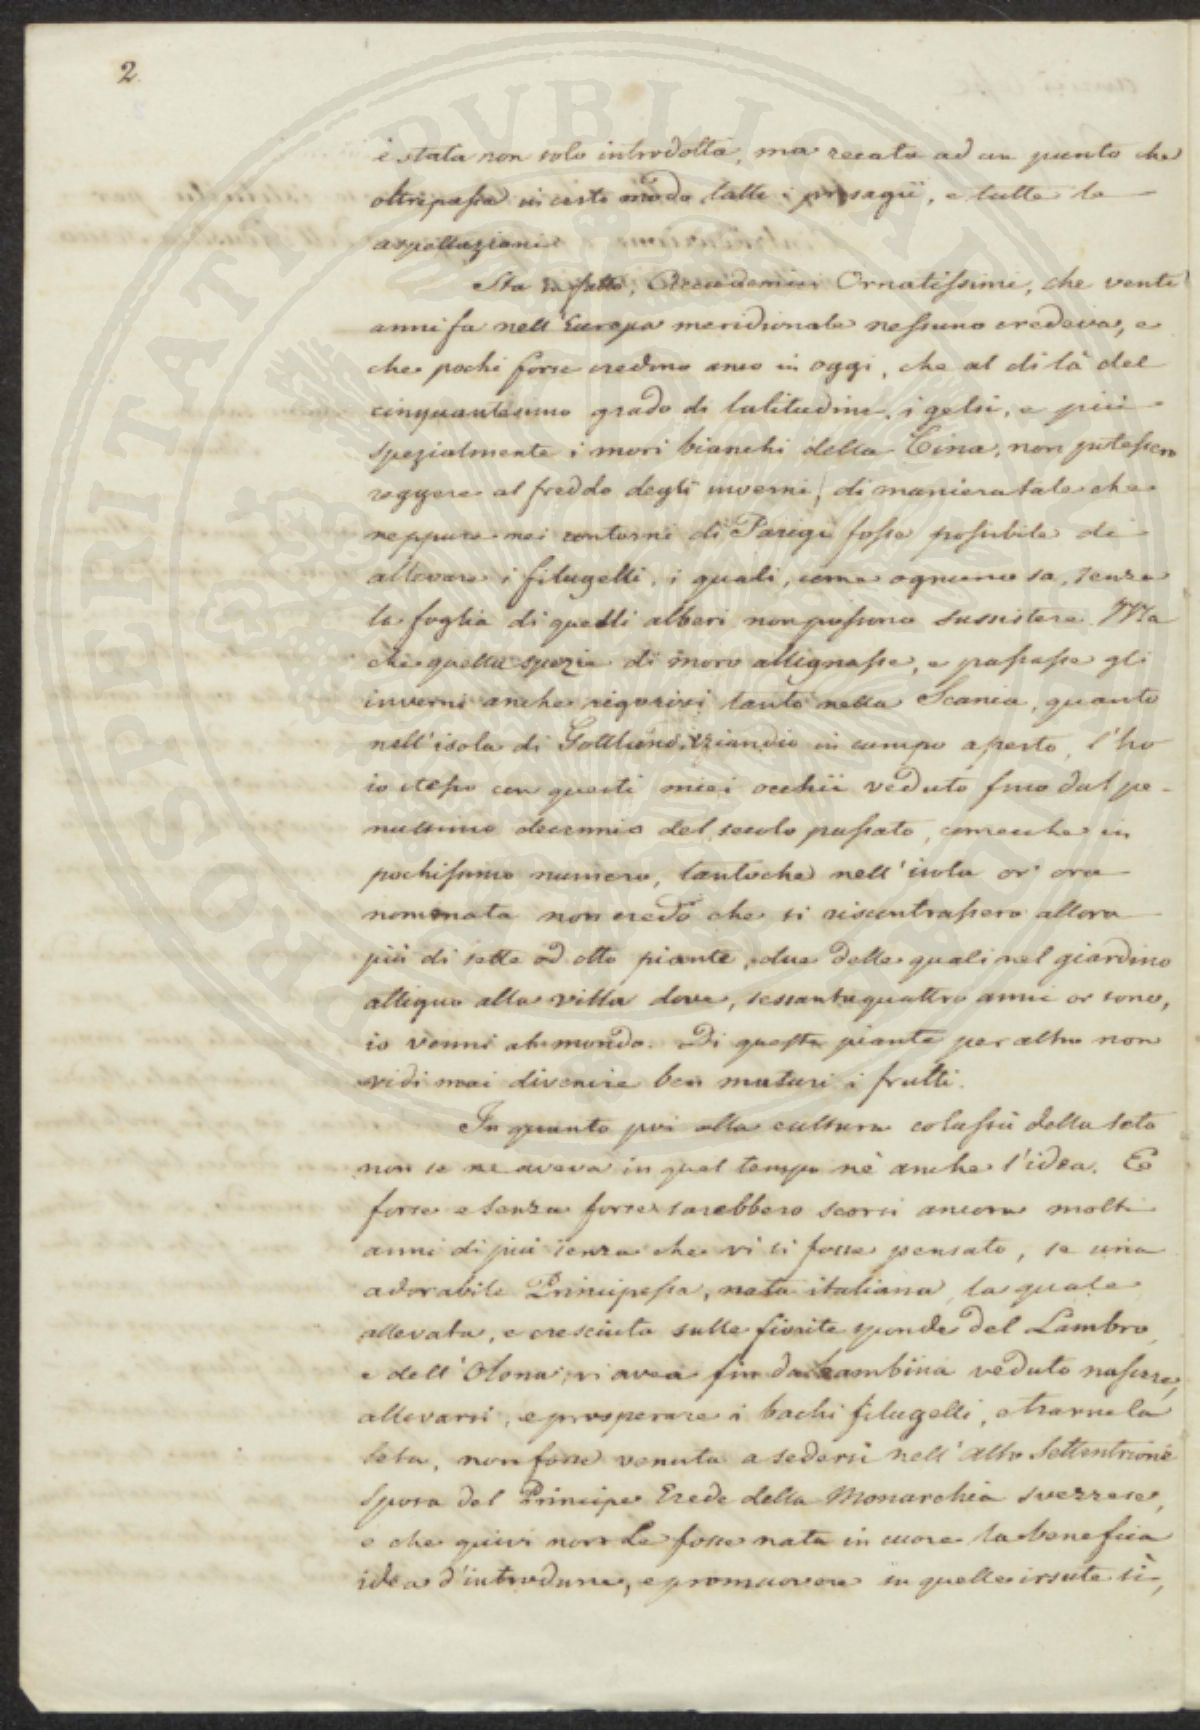 2
è stata non solo introdotta, ma recata ad un punto che
oltrepassa in certo modo tutti i presagii, e tutte le
aspettazioni.
Sta in fatto, Accademici Ornatissimi, che venti
anni fa nell'Europa meridionale nessuno credeva, e
che pochi forse credono anco in oggi, che al di là del
cinquantesimo grado di latitudine, i gelsi, e più
spezialmente i mori bianchi della Cina, non potessero
reggere al freddo degli inverni, di maniera tale che
neppure nei contorni di Parigi fosse possibile di
allevare i filugelli, i quali, come ognuno sa, senza
la foglia di quelli alberi non possono sussistere. Ma
che quella spezie di moro allignasse, e passasse gli
inverni anche rigorosi tanto nella Scania, quanto
nell'isola di Gottland, eziandio in campo aperto, l'ho
io stesso con questi miei occhii veduto fino dal pe-
nultimo decennio del secolo passato, comecche in
pochissimo numero, tantoche nell'isola or' ora
nominata non credo che si riscontrassero allora
più di sette od otto piante, due delle quali nel giardino
attiguo alla villa dove, sessantaquattro anni or sono,
io venni al mondo. Di queste piante per altro non
vidi mai divenire ben maturi i frutti.
In quanto poi alla cultura colassù della seta
non se ne aveva in quel tempo nè anche l'idea. E
forse e senza forse sarebbero scorsi ancora molti
anni di più senza che vi si fosse pensato, se una
adorabile Principessa, nata italiana, la quale
allevata, e cresciuta sulle fiorite sponde del Lambro,
e dell'Olona, vi avea fin da bambina veduto nascere,
allevarsi, e prosperare i bachi filugelli, e trarne la
seta, non fosse venuta a sedersi nell'alto Settentrione
sposa del Principe Erede della Monarchia svezzese,
e che quivi non Le fosse nata in cuore la benefica
idea d'introdurre, e promuovere in quelle irsute sì,
PROSPERITATI PUBLICAE